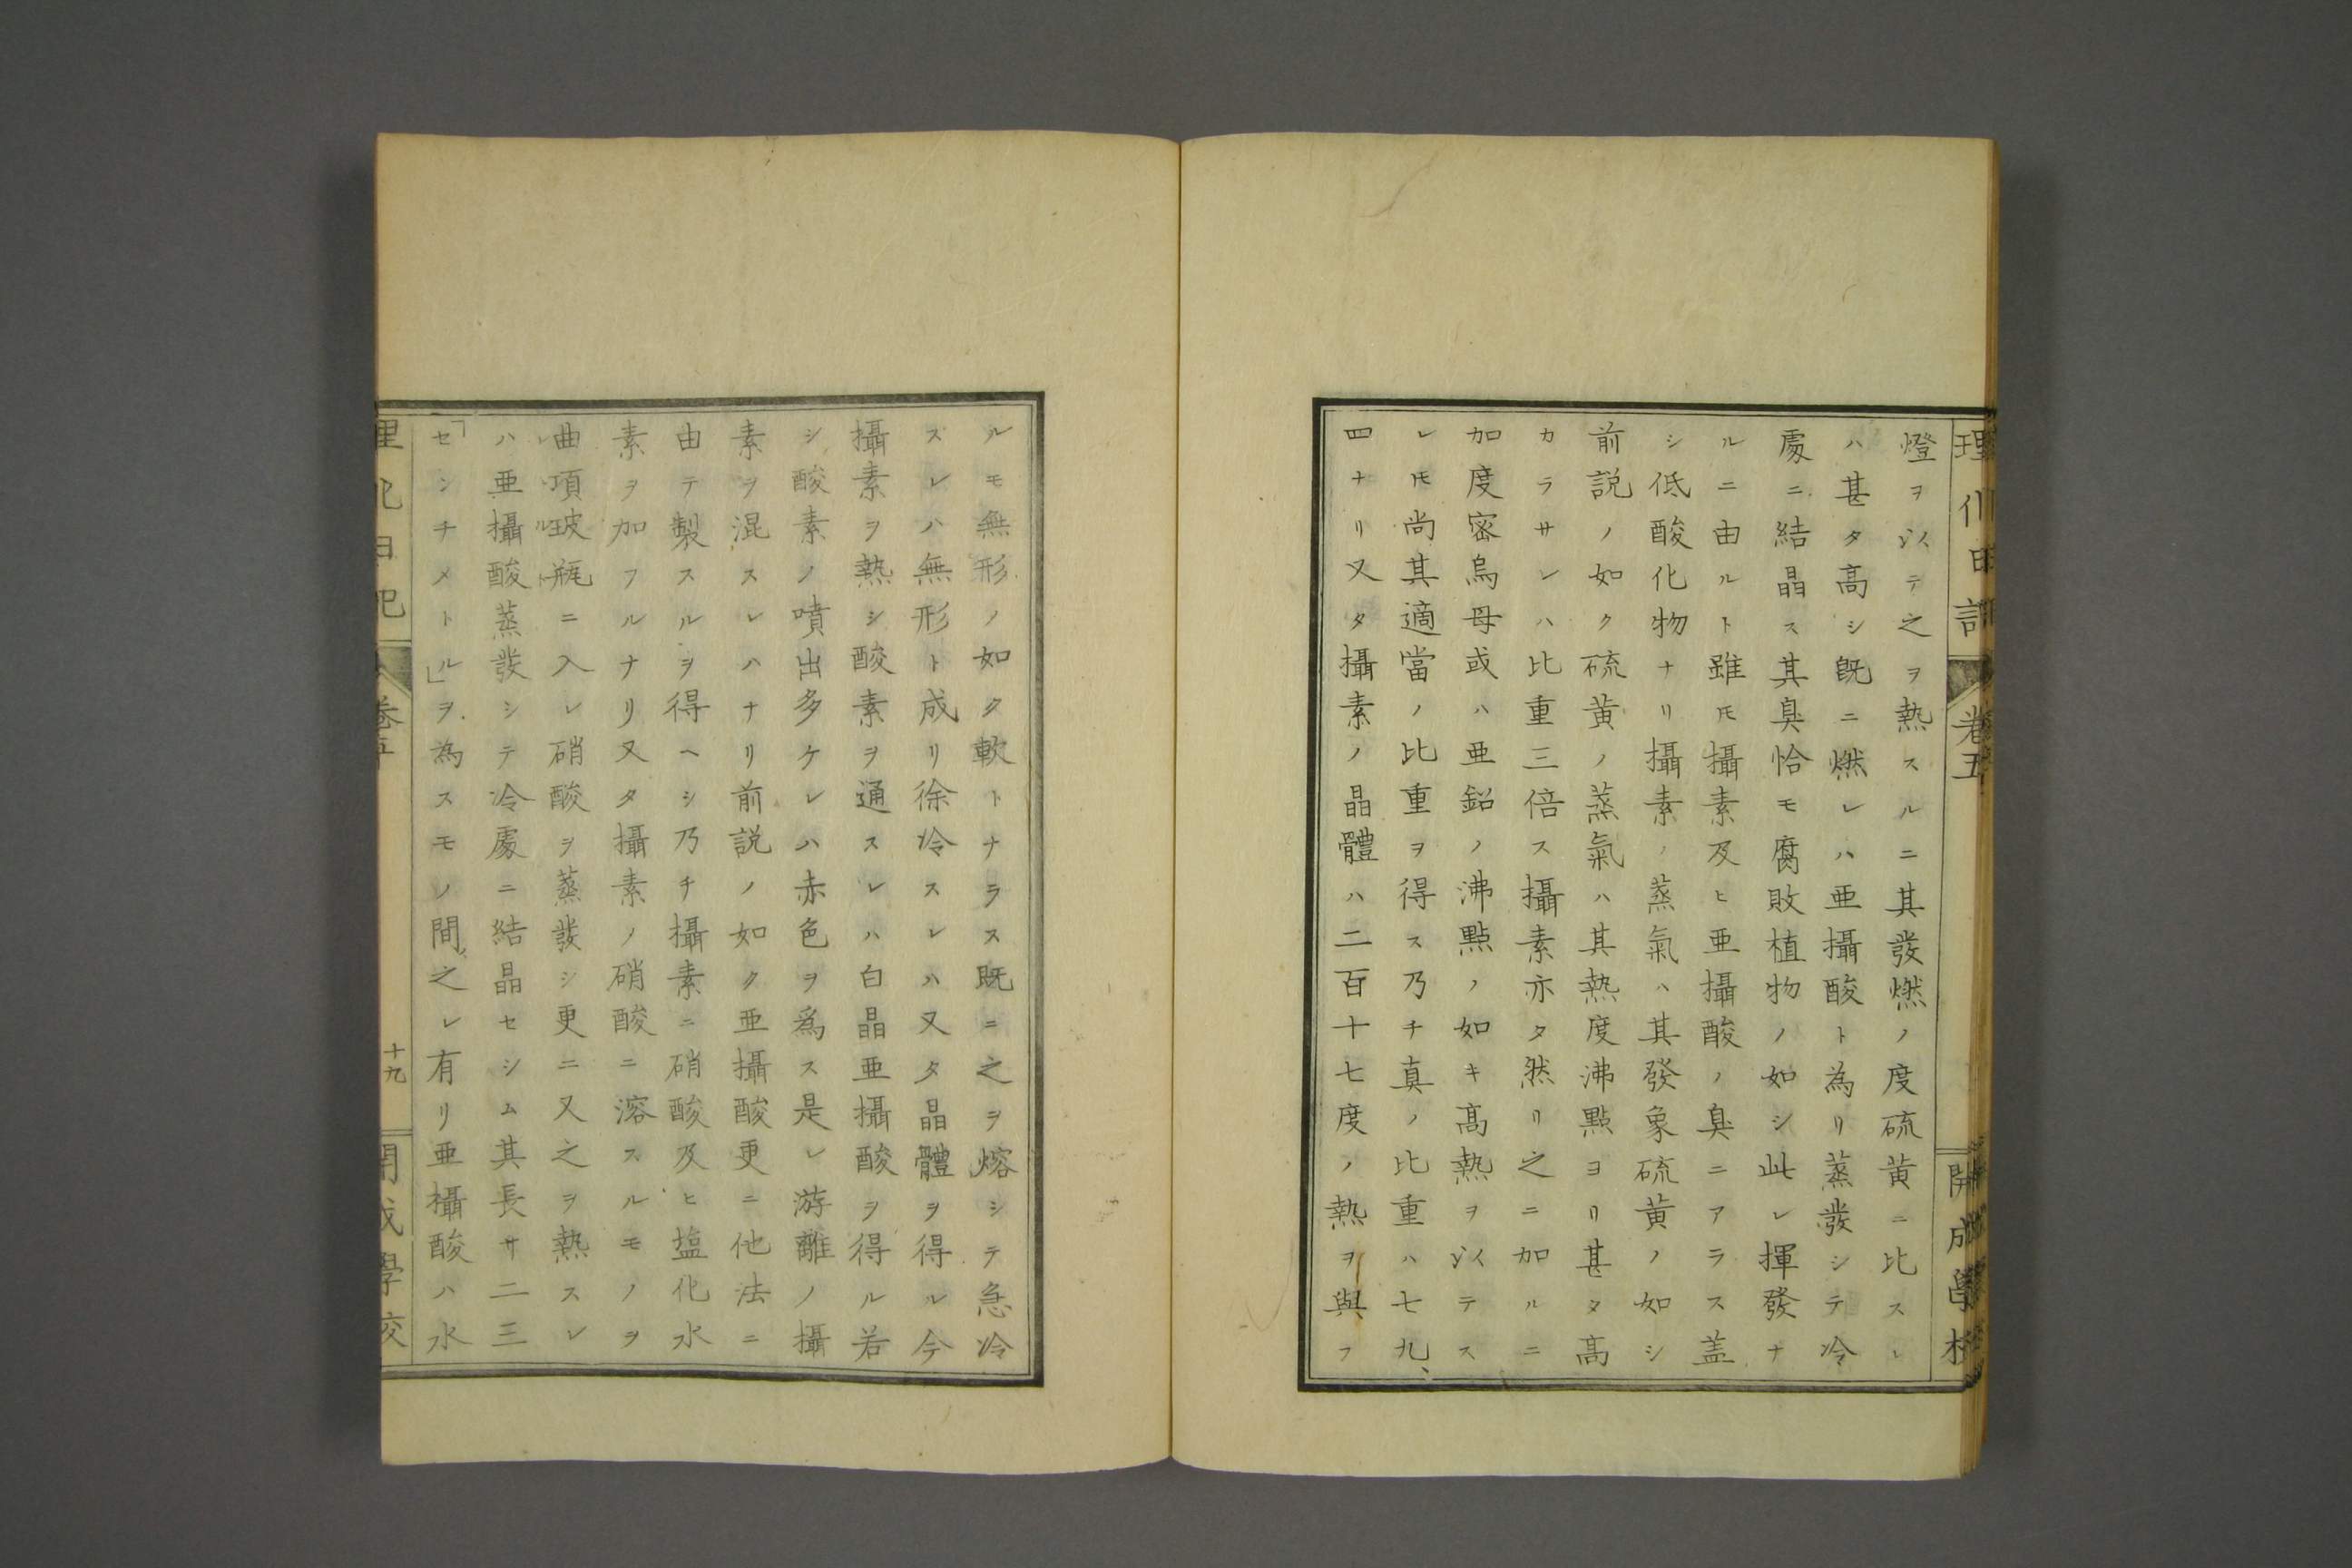 理化日記 卷五 開成學校
燈ヲ以テ之ヲ熱スルニ其發燃ノ度硫黄ニ比スレ
ハ甚タ高シ既ニ燃レハ亜攝酸ト為リ蒸發シテ冷
處ニ結晶ス其臭恰モ腐敗植物ノ如シ此レ揮發ナ
ルニ由ルト雖𪜈攝素及ヒ亜攝酸ノ臭ニアラス盖
シ低酸化物ナリ攝素ノ蒸氣ハ其發象硫黄ノ如シ
前説ノ如ク硫黄ノ蒸氣ハ其熱度沸點ヨリ甚タ高
カラサレハ比重三倍ス攝素亦タ然リ之ニ加ルニ
加度密烏母或ハ亜鉛ノ沸點ノ如キ高熱ヲ以テス
レ𪜈尚其適當ノ比重ヲ得ス乃チ真ノ比重ハ七九、
四ナリ又タ攝素ノ晶體ハ二百十七度ノ熱ヲ與フ
ルモ無形ノ如ク軟トナラス既ニ之ヲ熔シテ急冷
スレハ無形ト成リ徐冷スレハ又タ晶體ヲ得ル今
攝素ヲ熱シ酸素ヲ通スレハ白晶亜攝酸ヲ得ル若
シ酸素ノ噴出多ケレハ赤色ヲ為ス是レ游離ノ攝
素ヲ混スレハナリ前説ノ如ク亜攝酸更ニ他法ニ
由テ製スルヲ得ヘシ乃チ攝素ニ硝酸及ヒ塩化水
素ヲ加フルナリ又タ攝素ノ硝酸ニ溶スルモノヲ
曲項玻瓶ニ入レ硝酸ヲ蒸發シ更ニ又之ヲ熱スレ
ハ亜攝酸蒸發シテ冷處ニ結晶セシム其長サ二三
「センチメトル」ヲ為スモノ間、之レ有リ亜攝酸ハ水
理化日記 卷五 十九 開成學校